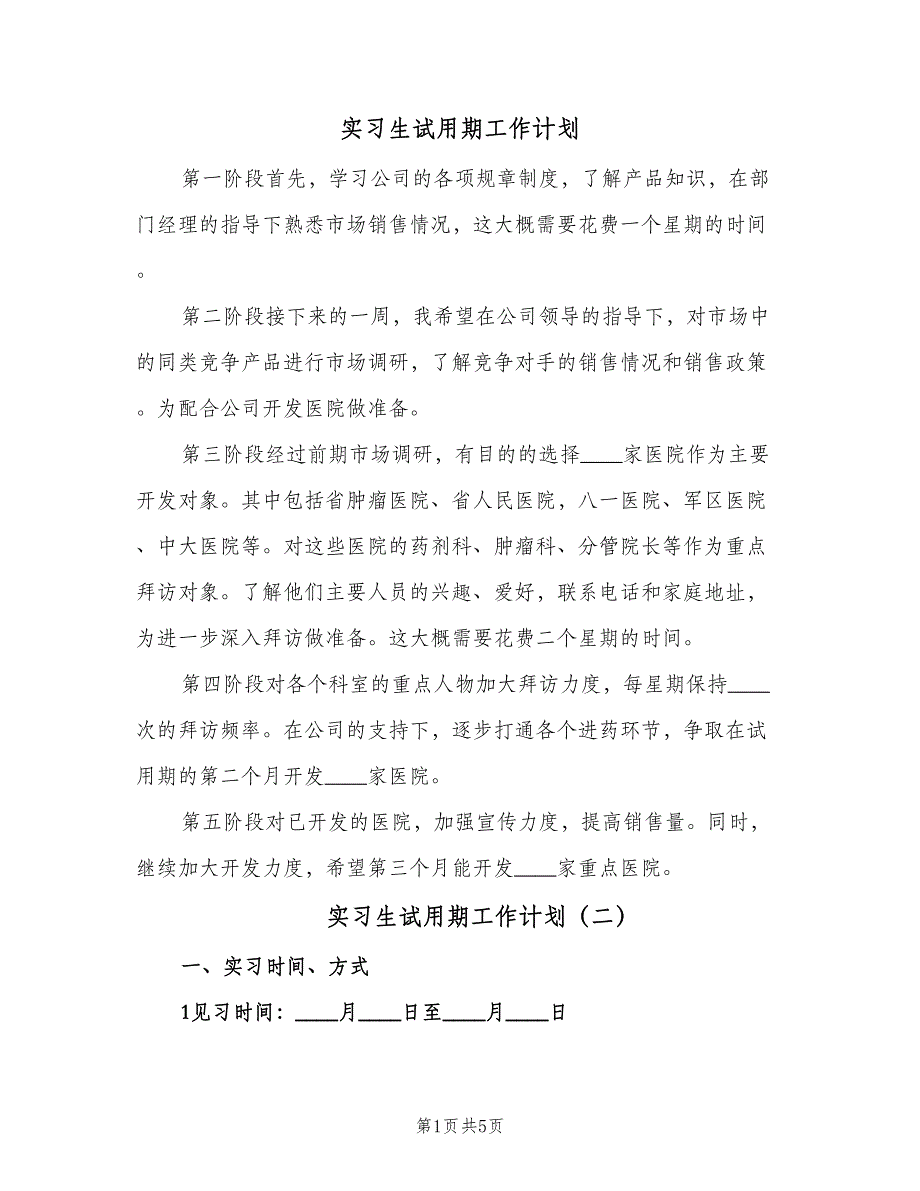 实习生试用期工作计划
第一阶段首先，学习公司的各项规章制度，了解产品知识，在部
门经理的指导下熟悉市场销售情况，这大概需要花费一个星期的时间
。
第二阶段接下来的一周，我希望在公司领导的指导下，对市场中
的同类竞争产品进行市场调研，了解竞争对手的销售情况和销售政策
。为配合公司开发医院做准备。
第三阶段经过前期市场调研，有目的的选择____家医院作为主要
开发对象。其中包括省肿瘤医院、省人民医院，八一医院、军区医院
、中大医院等。对这些医院的药剂科、肿瘤科、分管院长等作为重点
拜访对象。了解他们主要人员的兴趣、爱好，联系电话和家庭地址，
为进一步深入拜访做准备。这大概需要花费二个星期的时间。
第四阶段对各个科室的重点人物加大拜访力度，每星期保持____
次的拜访频率。在公司的支持下，逐步打通各个进药环节，争取在试
用期的第二个月开发____家医院。
第五阶段对已开发的医院，加强宣传力度，提高销售量。同时，
继续加大开发力度，希望第三个月能开发____家重点医院。
实习生试用期工作计划（二）
一、实习时间、方式
1见习时间：____月____日至____月____日
第1页 共5页